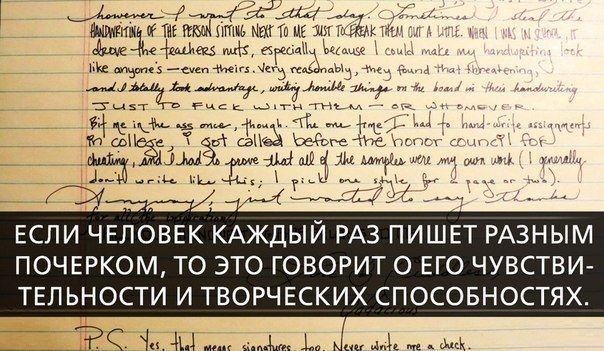 however I want to that day. Sometimes I steal the
HANDWRITING OF THE PERSON SITTING NEXT TO ME JUST TO FREAK THEM OUT A LITTLE. WHEN I WAS IN SCHOOL, IT
drove the teachers nuts, especially because I could make my handwriting look
like anyone's – even theirs. Very reasonably, they found that threatening,
and I totally took advantage, writing horrible things on the board in their handwriting
JUST TO FUCK WITH THEM — OR WHOMEVER.
Bit me in the ass once, though. The one time I had to hand-write assignments
in college, i got called before the honor council for
cheating, and I had to prove that all of the samples were my own work (I generally
don't write like this; I pick one style for a page or two).
Anyway, just wanted to say thanks
for all the
ЕСЛИ ЧЕЛОВЕК КАЖДЫЙ РАЗ ПИШЕТ РАЗНЫМ
ПОЧЕРКОМ, ТО ЭТО ГОВОРИТ О ЕГО ЧУВСТВИ-
ТЕЛЬНОСТИ И ТВОРЧЕСКИХ СПОСОБНОСТЯХ.
P.S. Yes, that means signatures, too. Never write me a check.